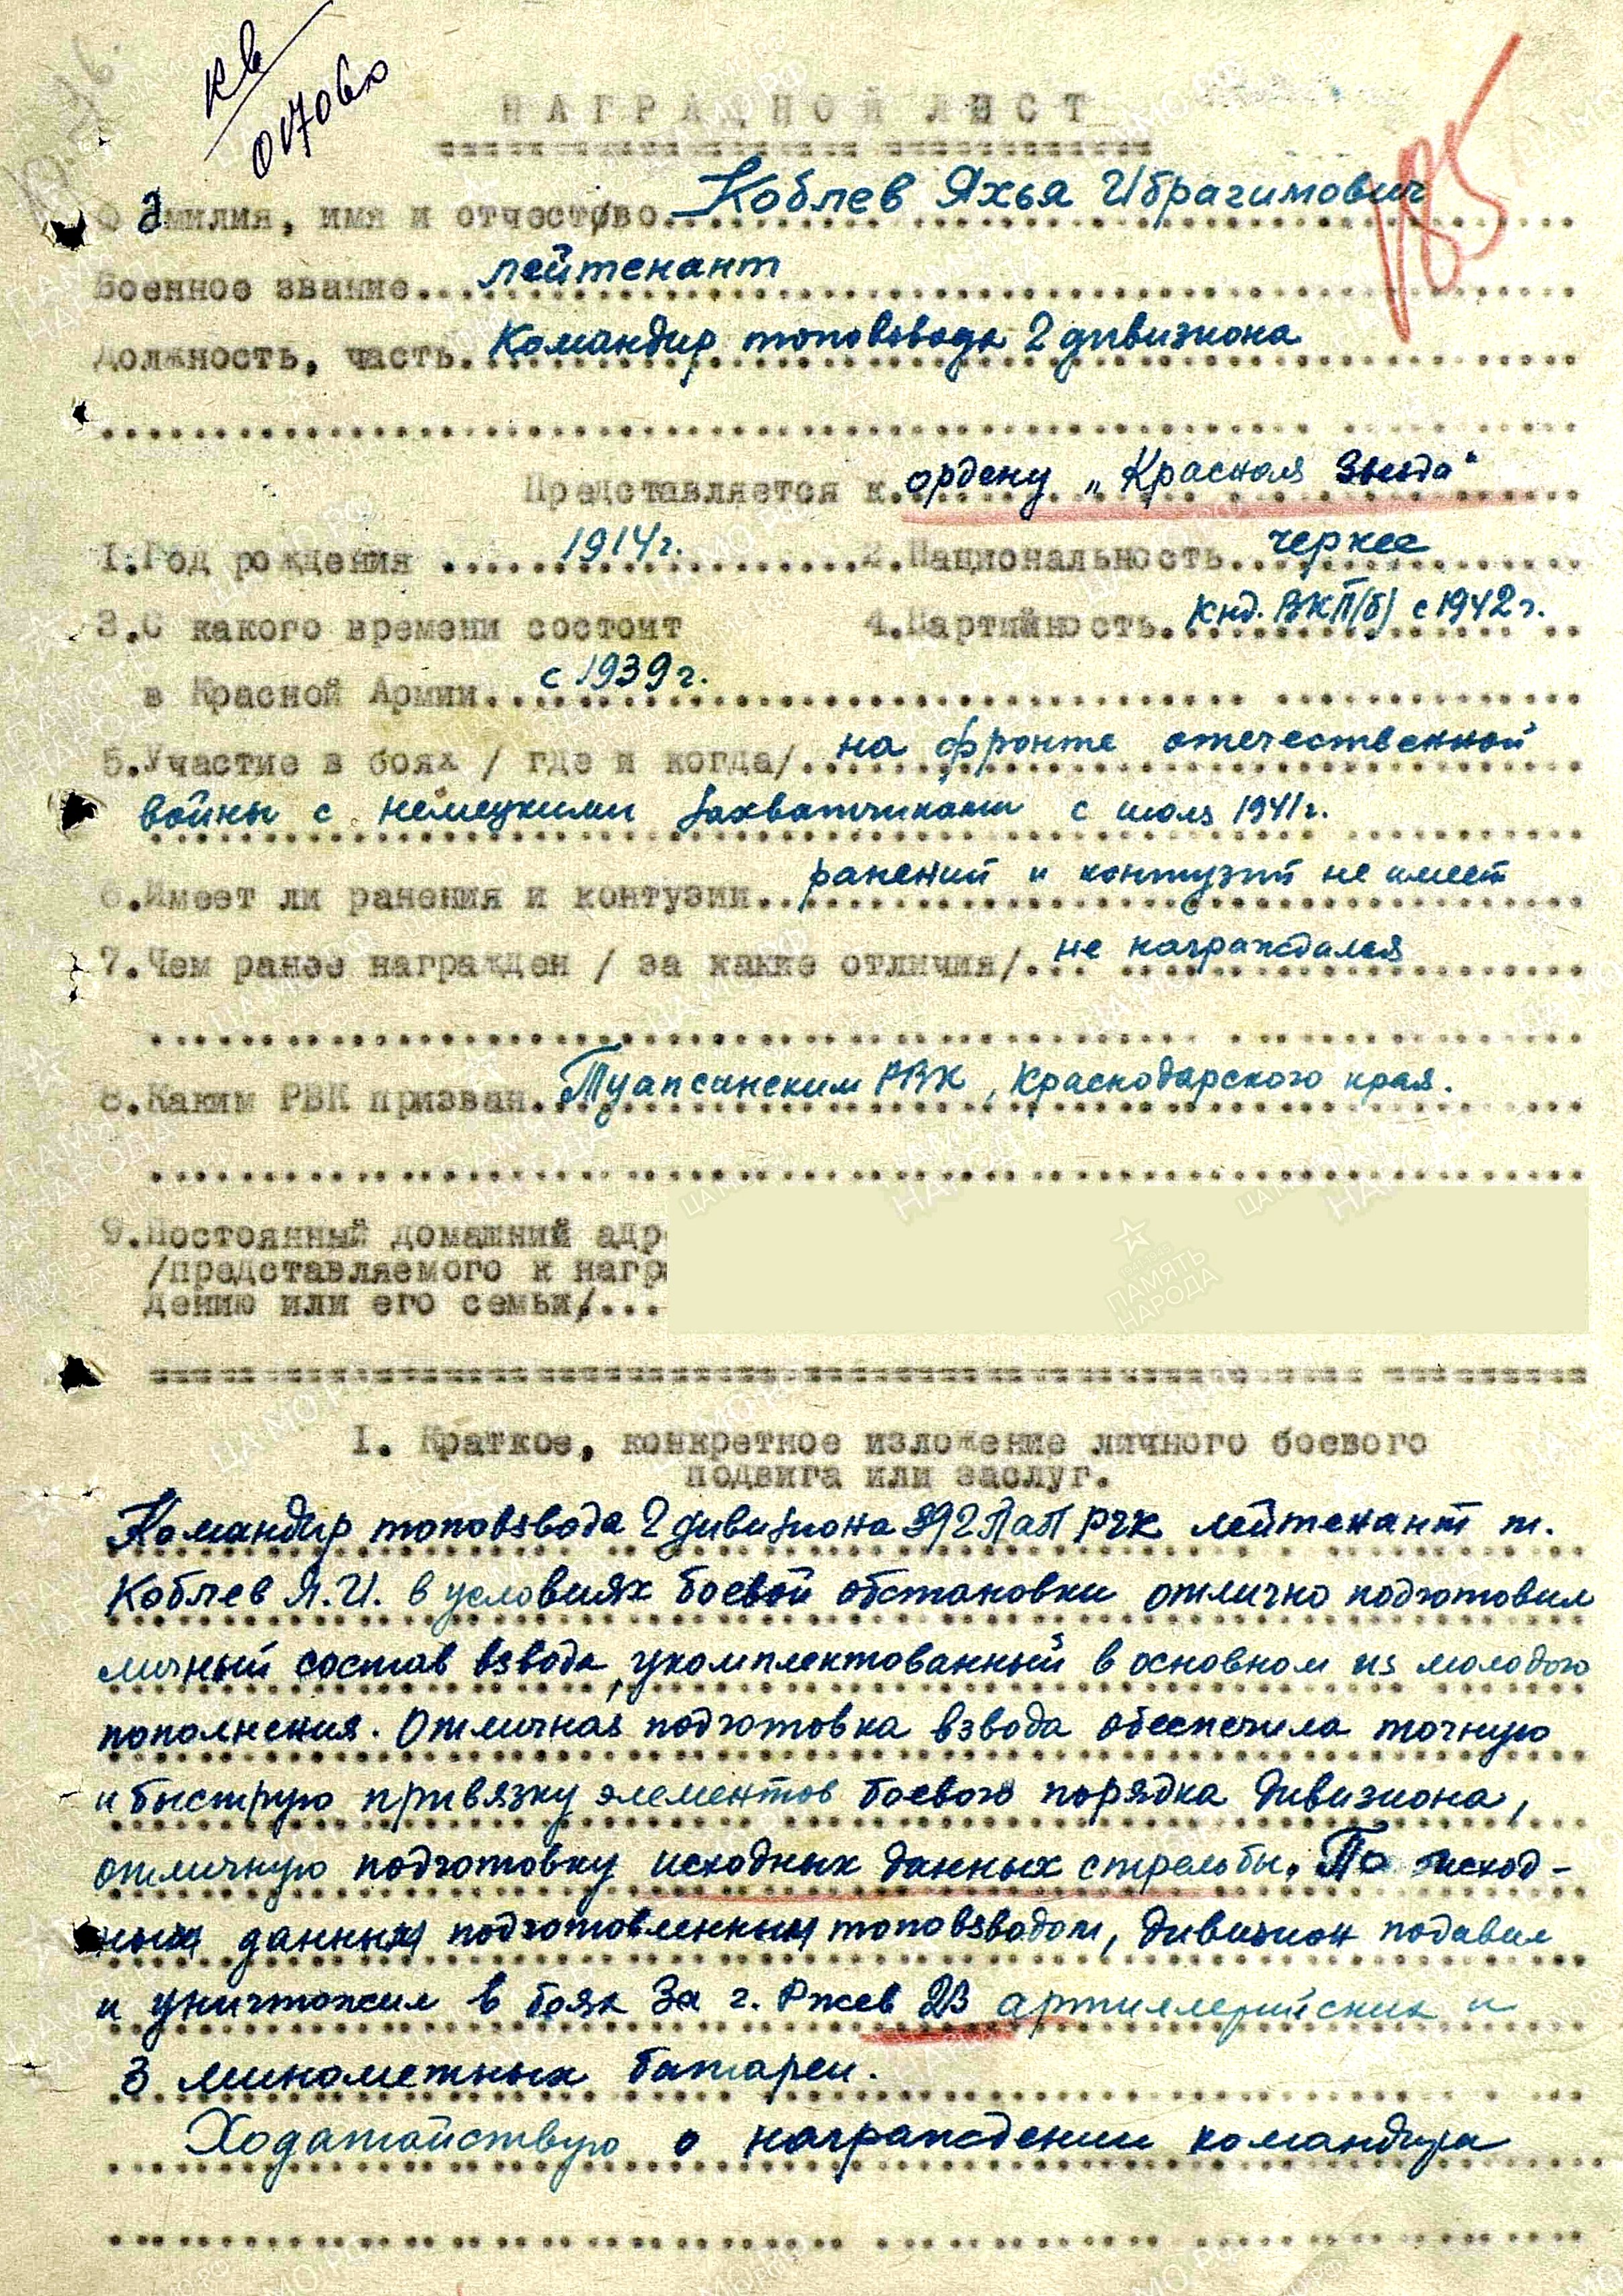 кв
0170бю
185
НАГРАДНОЙ ЛИСТ
Фамилия, имя и отчество. Коблев Яхья Ибрагимович
Военное звание... лейтенант
Должность, часть. Командир топовзвода 2 дивизиона
Представляется к. ордену „Красная Звезда"
1.Год рождения 1914г. 2.Национальность. черкес
3.С какого времени состоит 4.Партийность. Кнд. ВКП(б) с 1942г.
в Красной Армии. с 1939г.
5.Участие в боях / где и когда/. на фронте отечественной
войны с немецкими захватчиками с июля 1941г.
6.Имеет ли ранения и контузии. ранений и контузий не имеет
7.Чем ранее награжден / за какие отличия/. не награждался
8.Каким РВК призван. Туапсинским РВК, Краснодарского края.
9.Постоянный домашний адр
/представляемого к награ
дению или его семьи/...
I. Краткое, конкретное изложение личного боевого
подвига или заслуг.
Командир топовзвода 2 дивизиона 392 ПаП РГК лейтенант т.
Коблев Я.И. в условиях боевой обстановки отлично подготовил
личный состав взвода, укомплектованный в основном из молодого
пополнения. Отличная подготовка взвода обеспечила точную
и быструю привязку элементов боевого порядка дивизиона,
отличную подготовку исходных данных стрельбы. По исход-
ным данным подготовленным топовзводом, дивизион подавил
и уничтожил в боях за г. Ржев 23 артиллерийских и
3 минометных батареи.
Ходатайствую о награждении командира